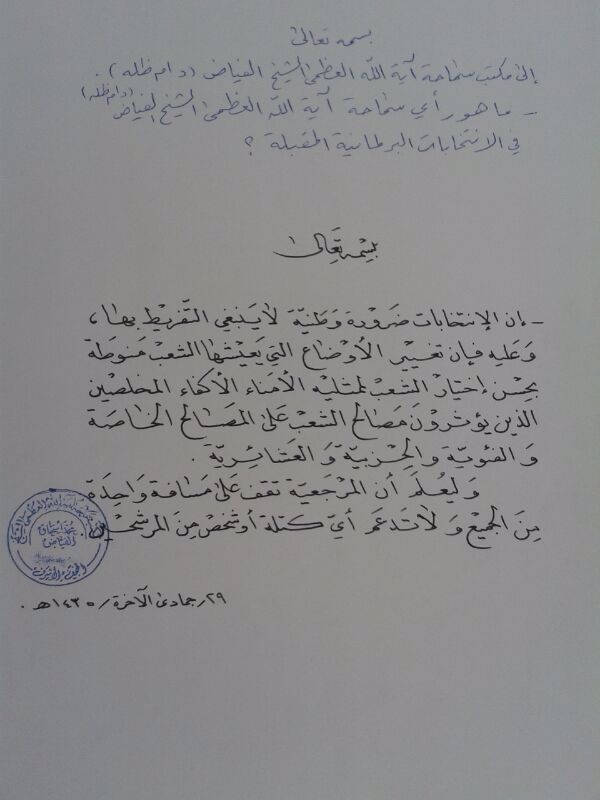 بسمه تعالى
إلى مكتب سماحة آية الله العظمى الشيخ الفياض (دام ظله).
- ما هو رأي سماحة آية الله العظمى الشيخ الفياض (دام ظله)
في الانتخابات البرلمانية المقبلة ؟
بِسْمِهِ تَعَالى
- إن الإنتخابات ضَرورة وَطنيّة لا يَنبَغي التّفريط بهَا،
وَعَليه فإن تغيير الأوْضَاع التي يَعيْشها الشعبْ مَنوطَة
بحُسن إختيَار الشعبْ لممثليه الأمناء الأكفاء المخلصين
الذين يؤثرونَ مَصَالح الشعبْ عَلى المصَالح الخاصَة
وَ الفئويّة والحزبيّة وَ العَشائريّة.
وَليُعلَم أن المرْجَعيّة تقف عَلى مَسَافة وَاحِدَة
مِنَ الجَميْع وَ لا تدعَم أيّ كتلة أو شخص مِنَ المرشحين.
النجف الأشرف
٢٩/ جمادى الآخرة/ ١٤٣٥هـ.